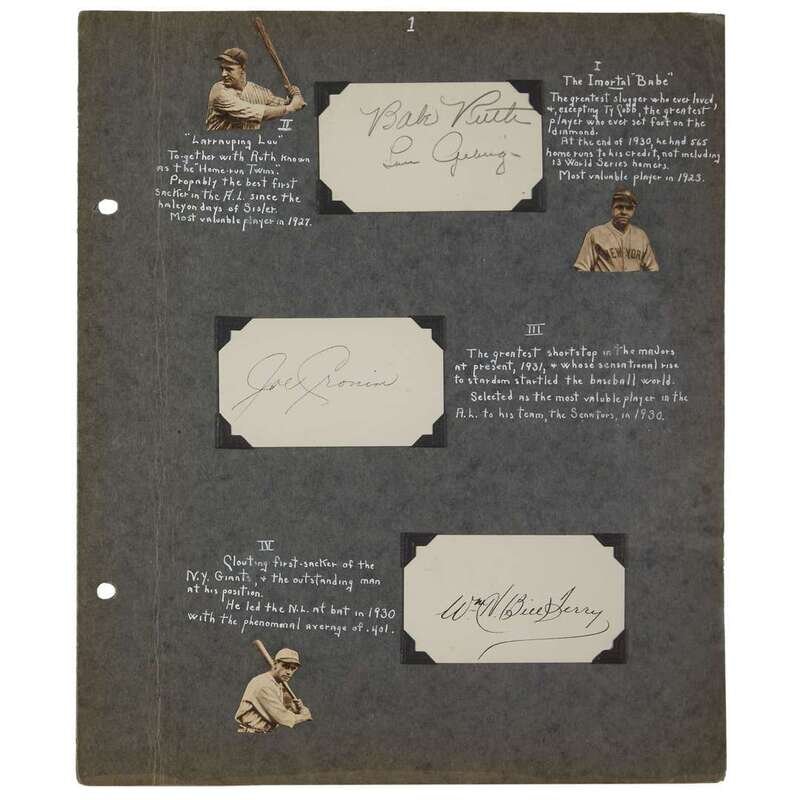 1
I
The Imortal "Babe"
The greatest slugger who ever lived
&, excepting Ty Cobb, the greatest
player who ever set foot on the
diamond.
At the end of 1930, he had 565
home runs to his credit, not including
13 World Series homers.
Most valuable player in 1923.
NEW YORK
Babe Ruth
Lou Gehrig
II
"Larruping Lou"
Together with Ruth known
as the "Home-run Twins."
Propably the best first
sacker in the A.L. since the
halcyon days of Sisler.
Most valuable player in 1927.
Joe Cronin
III
The greatest shortstop in the majors
at present, 1931, & whose sensational rise
to stardom startled the baseball world.
Selected as the most valuble player in the
A.L. to his team, the Senators, in 1930.
IV
Clouting first-sacker of the
N.Y. Giants, & the outstanding man
at his position.
He led the N.L. at bat in 1930
with the phenomnal average of .401.
Wm H. Bill Terry